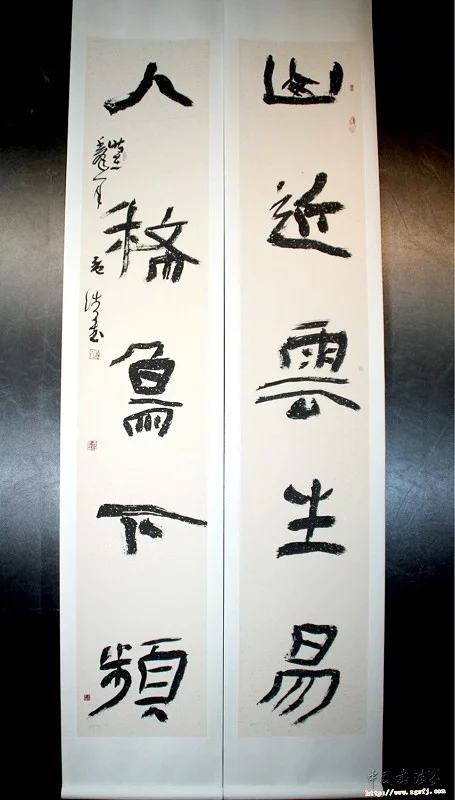 山近雲生易
人稀鳥下頻
http://www.zgsfj.com